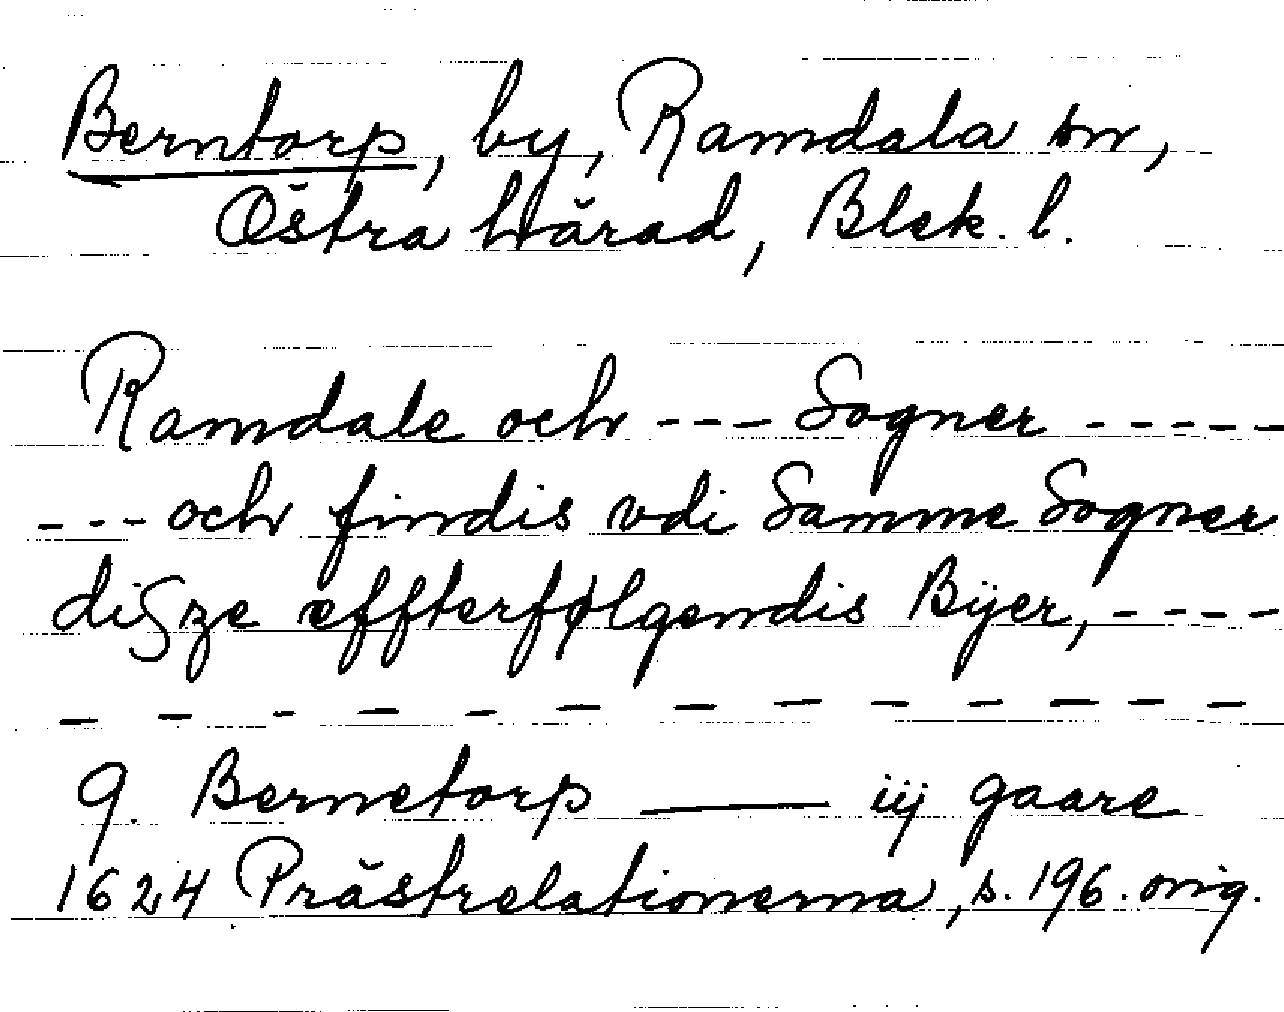 Berntorp, by, Ramdala sn,
Östra härad, Blek. l.
Ramdale och --- Sogner -----
--- och findis vdi Samme Sogner
diſze effterfølgendis Bÿer, ----
— — — — — — — — — — — — —
9. Bernetorp —— iij gaare
1624 Prästrelationerna, s. 196. orig.